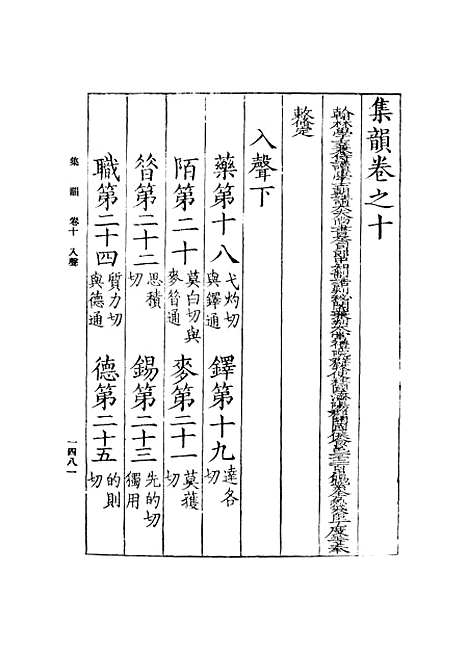 集韻卷之十
翰林學士兼侍讀學士朝請大夫尚書左司郎中知制誥判祕閣兼判太常禮院羣牧使柱國濟陽郡開國侯食邑一千二百戶賜紫金魚袋臣丁度等奉
敕修定
入聲下
藥第十八弋灼切與鐸通 鐸第十九達各切
陌第二十莫白切與麥昔通 麥第二十一莫獲切
昔第二十二思積切 錫第二十三先的切獨用
職第二十四質力切與德通 德第二十五的則切
集韻 卷十 入聲
一四八一